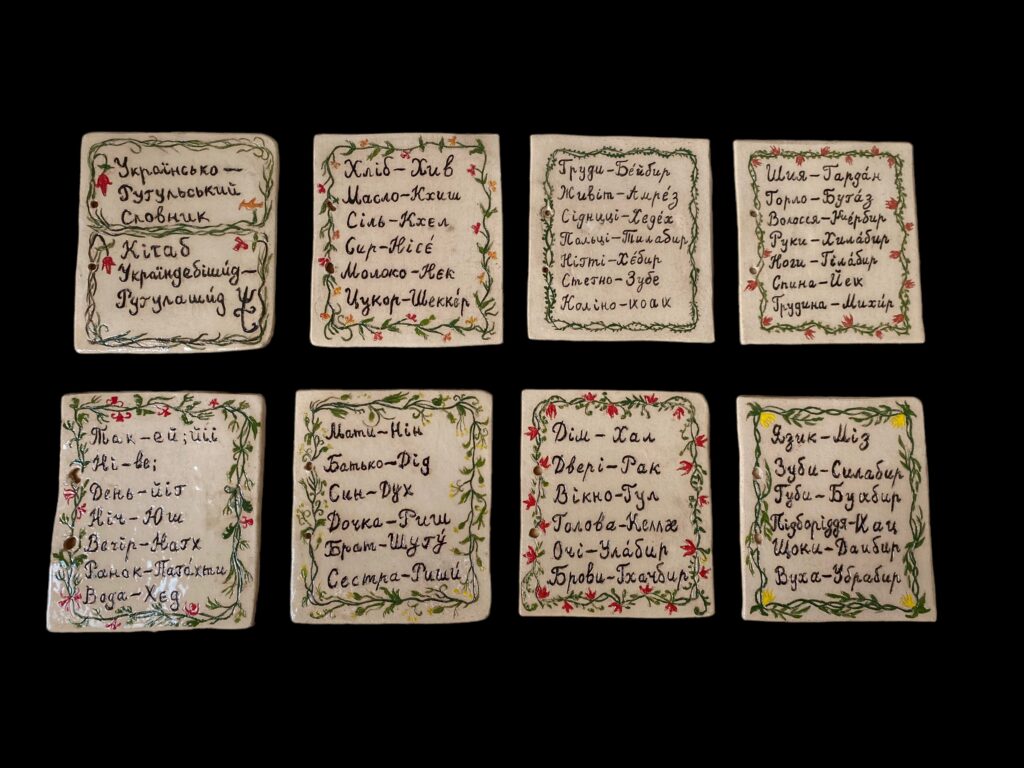 Українсько-
Рутульський
Словник
Кітаб
Україндебіши́д-
Рутулаши́д
Хліб-Хив
Масло-Кхиш
Сіль-Кхел
Сир-Нісе́
Молоко-Нек
Цукор-Шекке́р
Груди-Бе́йбир
Живіт-Амре́з
Сідниці-Хеде́х
Пальці-Тилабир
Нігті-Хе́бир
Стегно-Зубе
Коліно-
Шия-Гарда́н
Горло-Буга́з
Волосся-
Руки-Хила́бир
Ноги-Гіла́бир
Спина-Йек
Грудина-Михи́р
Так-ей;йіі
Ні-ве;
День-йіг
Ніч-Юш
Вечір-Нагх
Ранок-
Вода-Хед
Мати-Нін
Батько-Дід
Син-Дух
Дочка-Риш
Брат-Шугу́
Сестра-Риши́
Дім-Хал
Двері-Рак
Вікно-Гул
Голова-
Очі-Ула́бир
Брови-Гхачбир
Язик-Міз
Зуби-Силабир
Губи-Бухбир
Підборіддя-Кац
Щоки-
Вуха-Убрабир